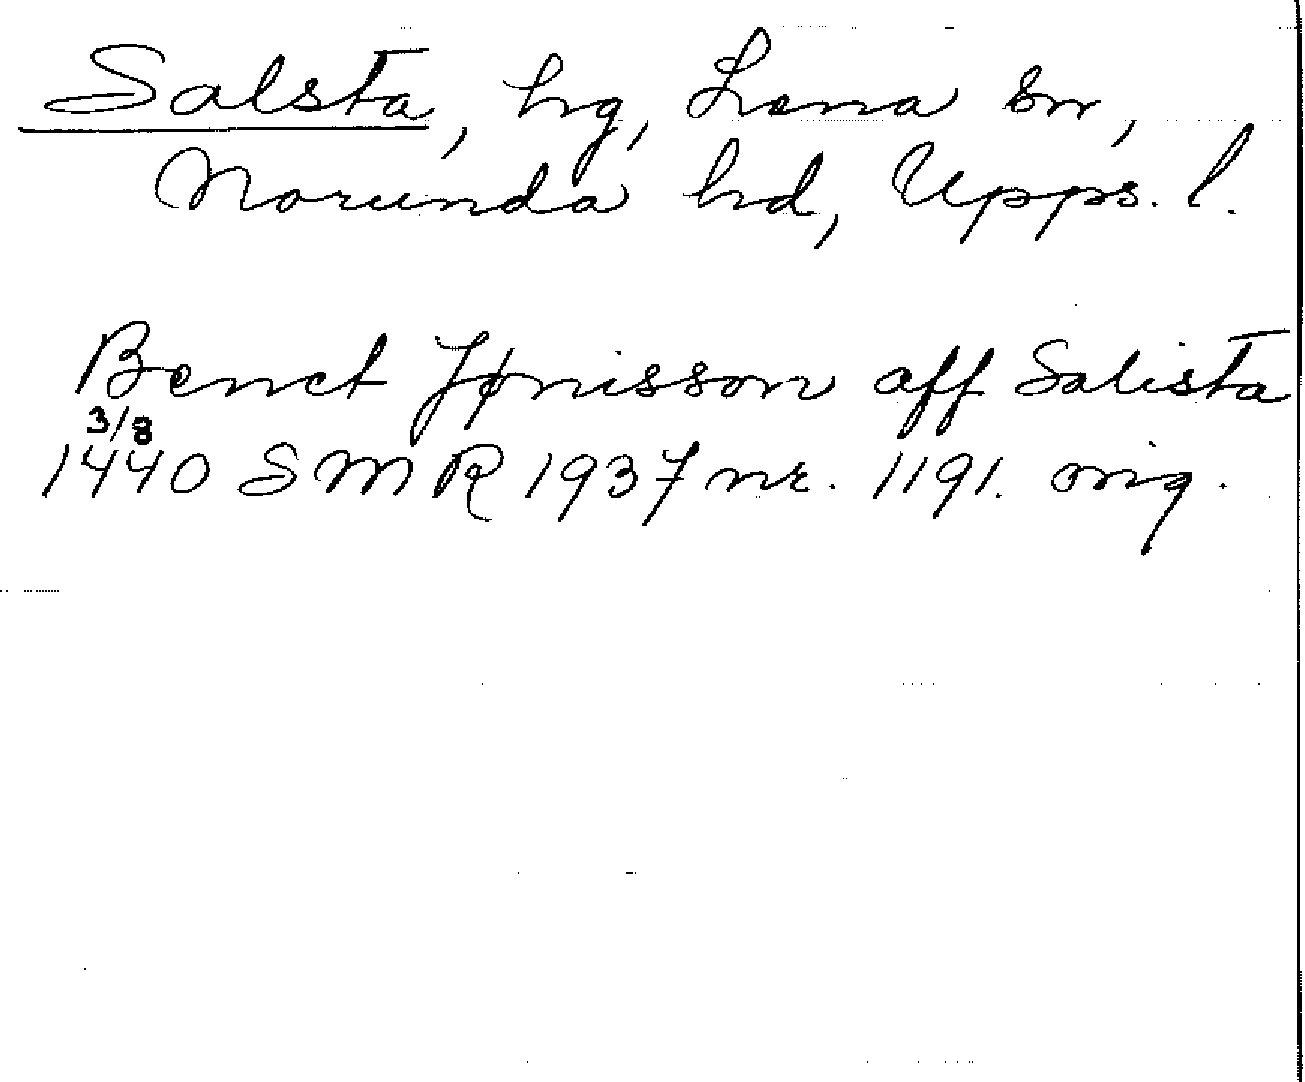 Salsta, hg, Lena sn,
Norunda hd, Upps. l.
Benct Jønisson aff Salista
3/8
1440 SMR 1937 nr. 1191. orig.